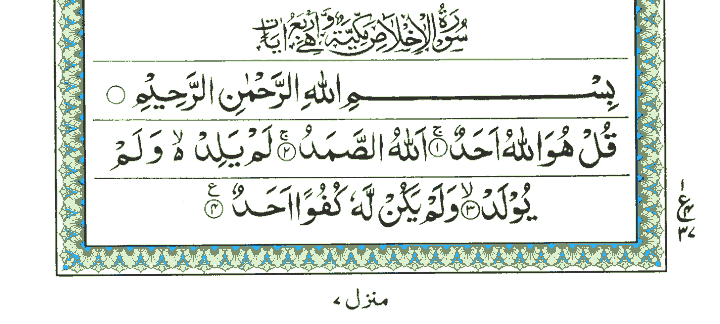 سُوْرَةُ الْاِخْلَاصِ مَكِّيَّةٌ وَّهِيَ اَرْبَعُ اٰيَاتٍ
بِسْمِ اللهِ الرَّحْمٰنِ الرَّحِيْمِ
قُلْ هُوَ اللهُ اَحَدٌ ۚ ﴿۱﴾ اَللهُ الصَّمَدُ ۚ ﴿۲﴾ لَمْ يَلِدْ ۙ۬ وَلَمْ
يُوْلَدْ ۙ ﴿۳﴾ وَلَمْ يَكُنْ لَّهٗ كُفُوًا اَحَدٌ ﴿۴﴾ ع
۱
ع ۴
۳۷
منزل ۷